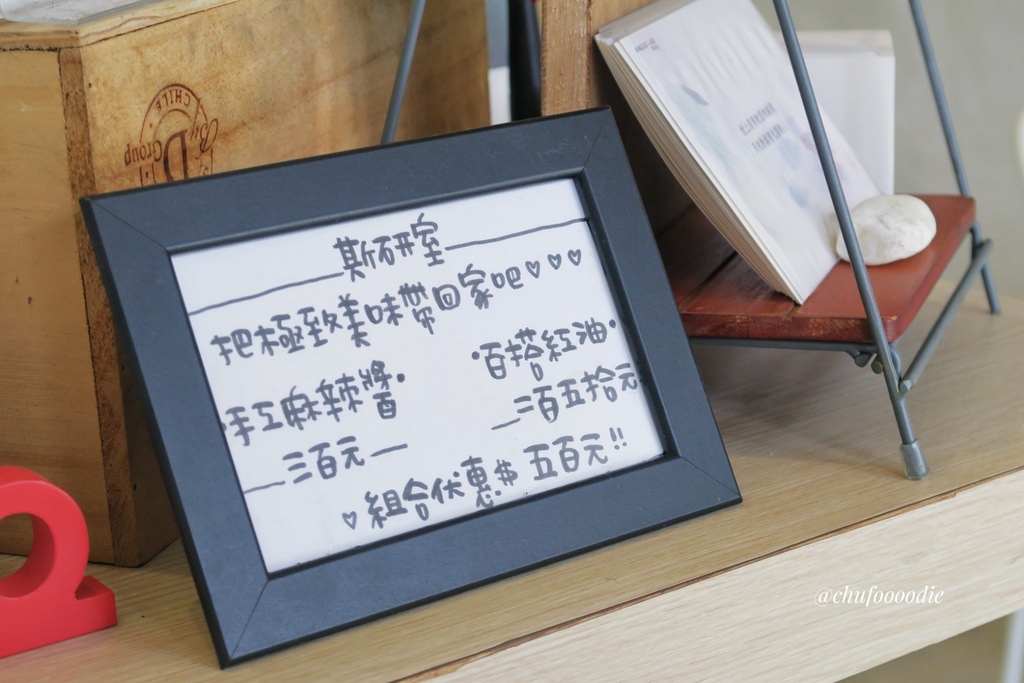 斯研室
把極致美味帶回家吧♡♡♡
·手工麻辣醬·
三百元
·百搭紅油·
二百五拾元
♡組合优惠$五百元!!
CHILE
By
D
Group
@chufoooodie